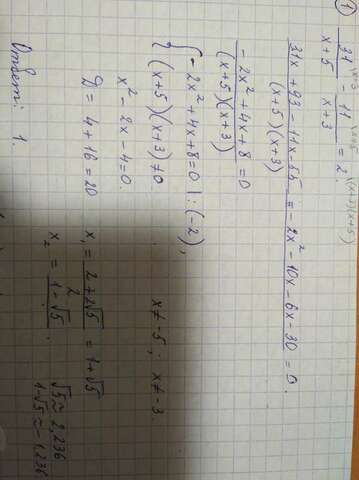 1
31/(x+5) - 11/(x+3) = 2. (x+3)(x+5)
(31x + 93 - 11x - 55 = -2x² - 10x - 6x - 30)/((x+5)(x+3)) = 0.
(-2x² + 4x + 8)/((x+5)(x+3)) = 0
{ -2x² + 4x + 8 = 0 | : (-2),
(x+5)(x+3) ≠ 0. x ≠ -5; x ≠ -3
x² - 2x - 4 = 0.
D = 4 + 16 = 20 x₁ = (2 + 2√5)/2 = 1 + √5
x₂ = 1 - √5. √5 ≈ 2,236
1 - √5 ≈ -1,236
Ответ: 1.